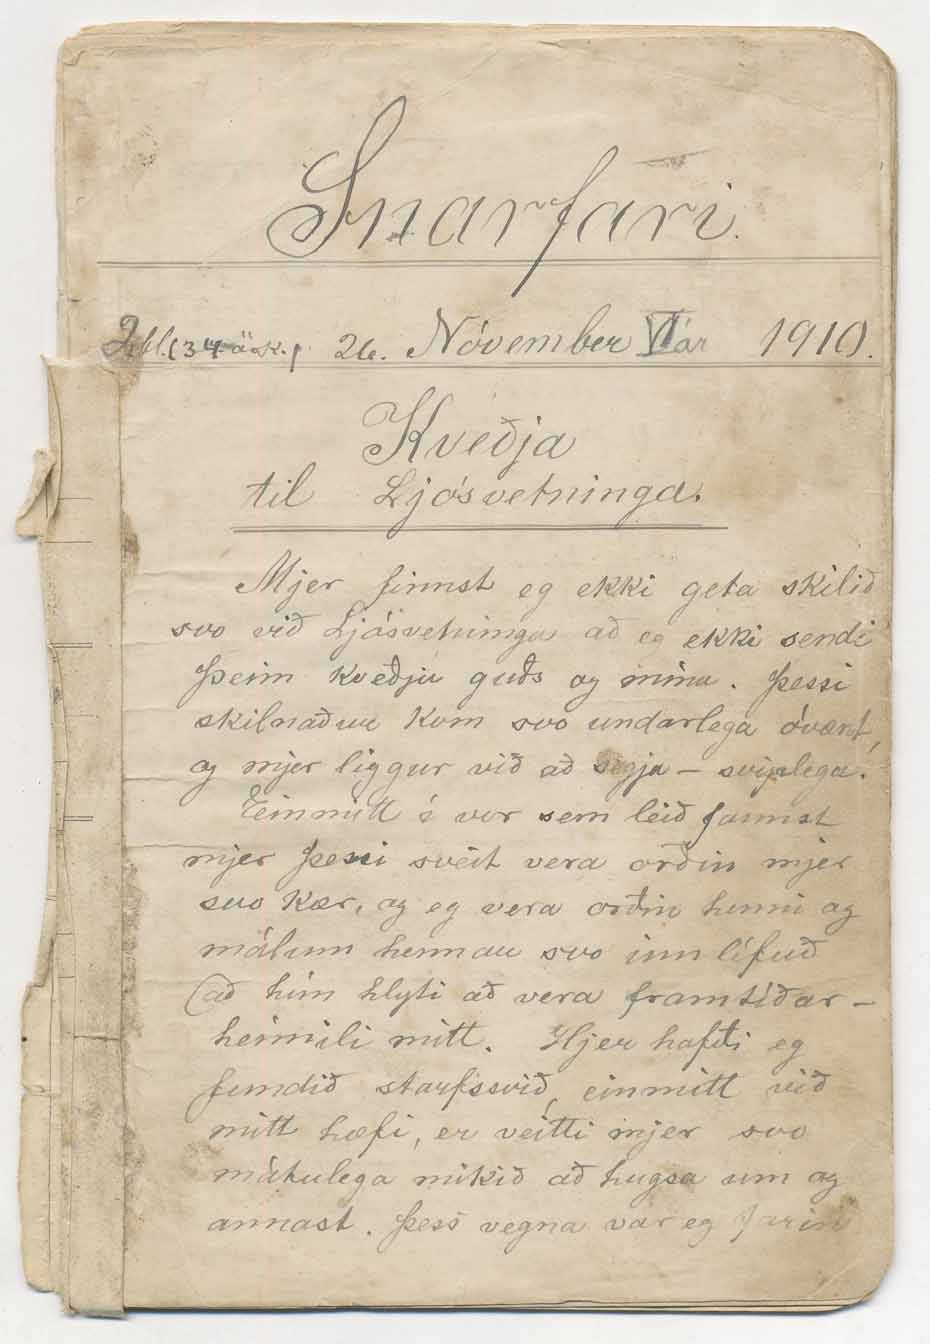 Snarfari.
2.bl. (34 ásk.) 26. Nóvember VI ár 1910.
Kveðja
til Ljósvetninga.
Mjer finnst eg ekki geta skilið
svo við Ljósvetninga að eg ekki sendi
þeim kveðju guðs og mína. Þessi
skilnaður kom svo undarlega óvænt,
og mjer liggur við að segja – sviplega.
Einmitt í vor sem leið fannst
mjer þessi sveit vera orðin mjer
svo kær, og eg vera orðin henni og
málum hennar svo innlífuð
að hún hlyti að vera framtíðar-
heimili mitt. Hjer hafði eg
fundið starfssvið, einmitt við
mitt hæfi, er veitti mjer svo
mátulega mikið að hugsa um og
annast. Þess vegna var eg farin